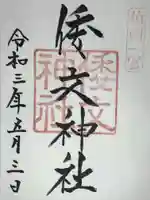 倭文神社
倭文
神社
令和三年五月三日